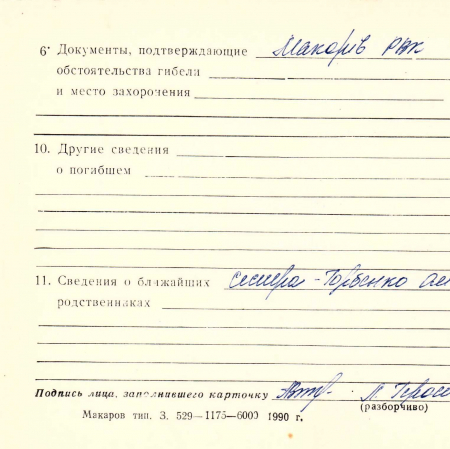 6· Документы, подтверждающие Макарів РВК
обстоятельства гибели
и место захоронения
10. Другие сведения
о погибшем
11. Сведения о ближайших сестра -
родственниках
Подпись лица, заполнившего карточку
(разборчиво)
Макаров тип. З. 529—1175—6000 1990 г.